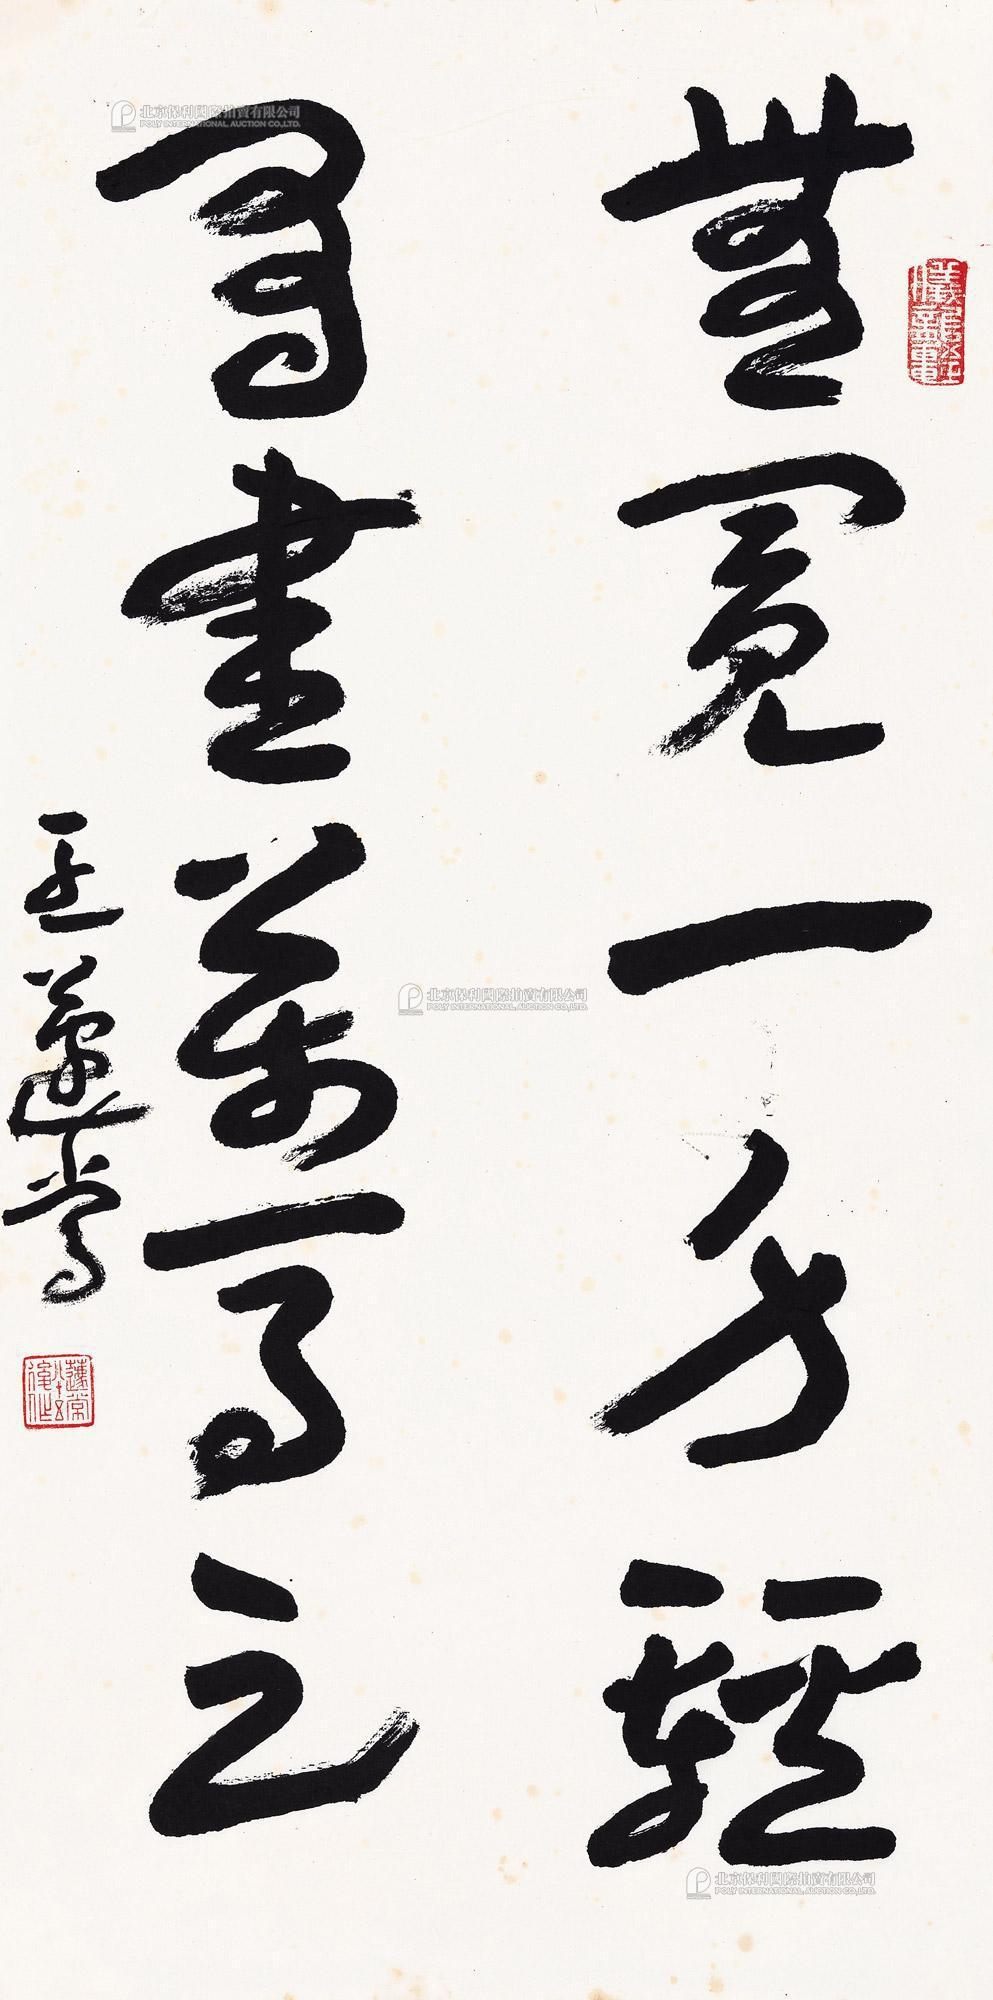 無一身輕
書萬事足
王蘧常
北京保利國際拍賣有限公司
POLY INTERNATIONAL AUCTION CO.,LTD.
北京保利國際拍賣有限公司
POLY INTERNATIONAL AUCTION CO.,LTD.
北京保利國際拍賣有限公司
POLY INTERNATIONAL AUCTION CO.,LTD.